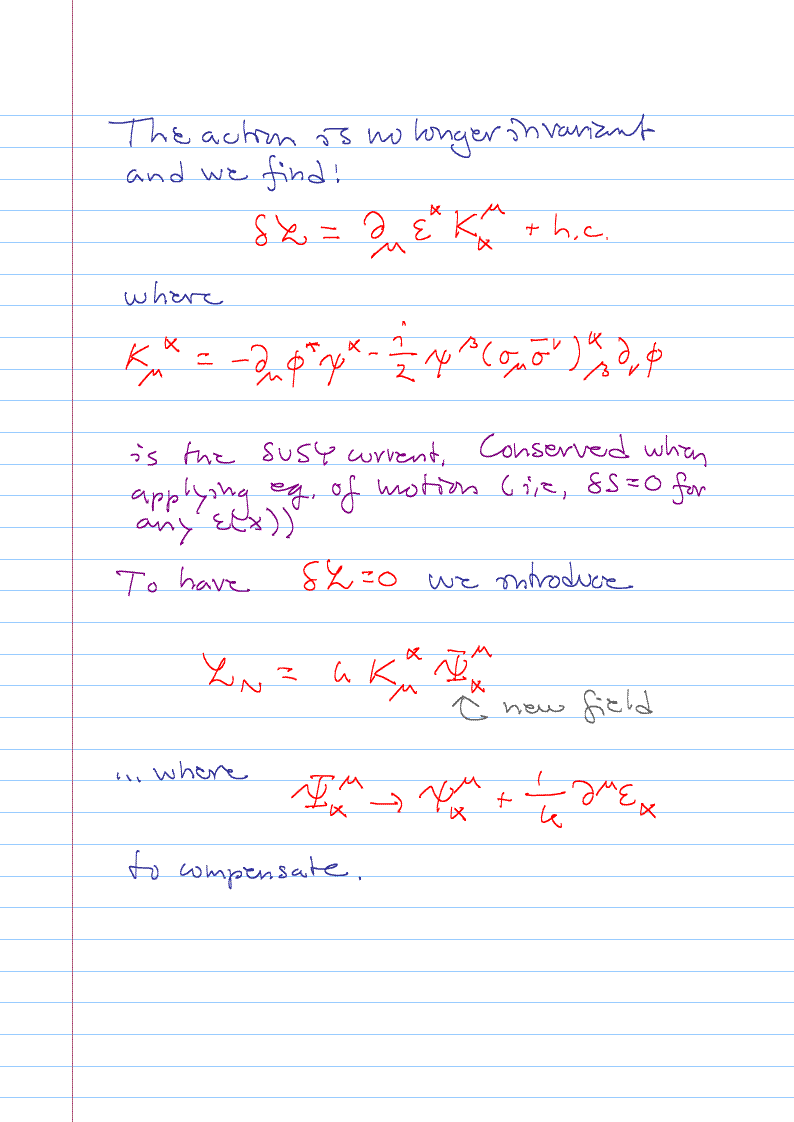 The action is no longer invariant
and we find:
δℒ = ∂_μ ε^α K^μ_α + h.c.
where
K_μ^α = -∂_μ φ* ψ^α - i/2 ψ^β (σ_μ σ̄^ν)^α_β ∂_ν φ
is the SUSY current, Conserved when
applying eq. of motion (i.e, δS=0 for
any ε(x))
To have δℒ=0 we introduce
ℒ_N = k K_μ^α Ψ^μ_α
new field
... where Ψ^μ_α → ψ^μ_α + 1/k ∂^μ ε_α
to compensate.